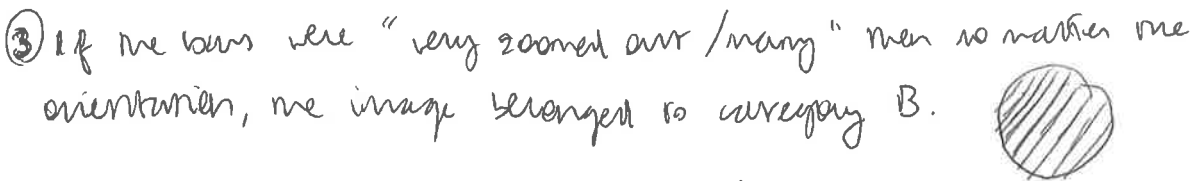 ③ If the bars were "very zoomed out / many" then no matter the
orientation, the image belonged to category B.